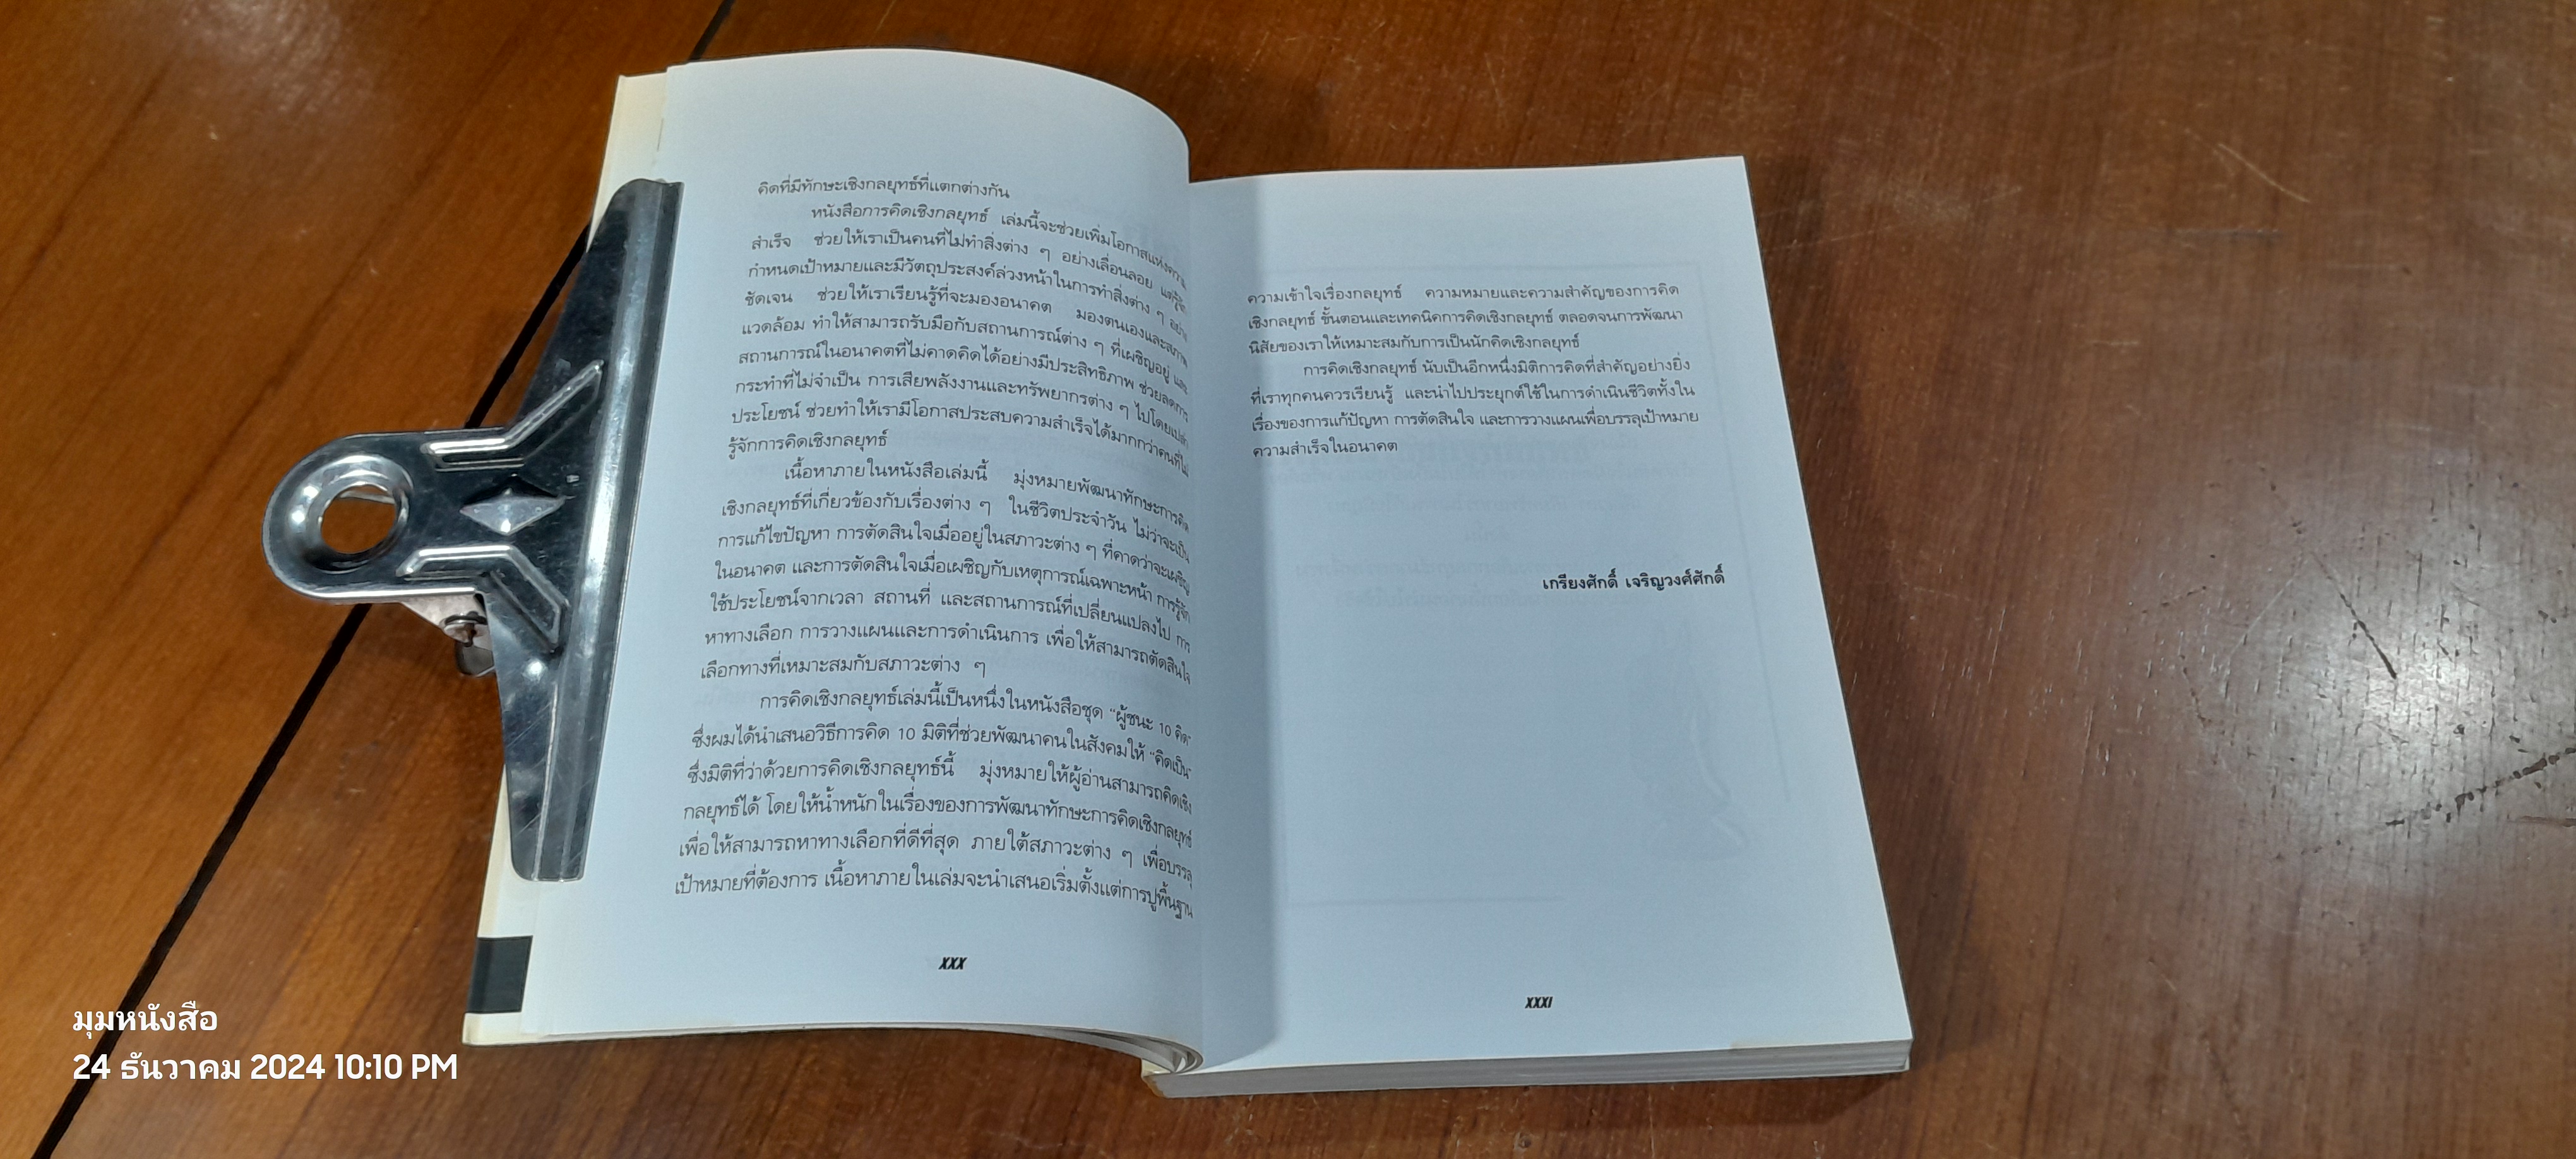 คิดที่มีทักษะเชิงกลยุทธ์ที่แตกต่างกัน
หนังสือการคิดเชิงกลยุทธ์ เล่มนี้จะช่วยเพิ่มโอกาสแห่งความ
สำเร็จ ช่วยให้เราเป็นคนที่ไม่ทำสิ่งต่าง ๆ อย่างเลื่อนลอย แต่รู้จัก
กำหนดเป้าหมายและมีวัตถุประสงค์ล่วงหน้าในการทำสิ่งต่าง ๆ อย่าง
ชัดเจน ช่วยให้เราเรียนรู้ที่จะมองอนาคต มองตนเองและสภาพ
แวดล้อม ทำให้สามารถรับมือกับสถานการณ์ต่าง ๆ ที่เผชิญอยู่ และ
สถานการณ์ในอนาคตที่ไม่คาดคิดได้อย่างมีประสิทธิภาพ ช่วยลดการ
กระทำที่ไม่จำเป็น การเสียพลังงานและทรัพยากรต่าง ๆ ไปโดยเปล่า
ประโยชน์ ช่วยทำให้เรามีโอกาสประสบความสำเร็จได้มากกว่าคนที่ไม่
รู้จักการคิดเชิงกลยุทธ์
เนื้อหาภายในหนังสือเล่มนี้ มุ่งหมายพัฒนาทักษะการคิด
เชิงกลยุทธ์ที่เกี่ยวข้องกับเรื่องต่าง ๆ ในชีวิตประจำวัน ไม่ว่าจะเป็น
การแก้ไขปัญหา การตัดสินใจเมื่ออยู่ในสภาวะต่าง ๆ ที่คาดว่าจะเผชิญ
ในอนาคต และการตัดสินใจเมื่อเผชิญกับเหตุการณ์เฉพาะหน้า การรู้จัก
ใช้ประโยชน์จากเวลา สถานที่ และสถานการณ์ที่เปลี่ยนแปลงไป การ
หาทางเลือก การวางแผนและการดำเนินการ เพื่อให้สามารถตัดสินใจ
เลือกทางที่เหมาะสมกับสภาวะต่าง ๆ
การคิดเชิงกลยุทธ์เล่มนี้เป็นหนึ่งในหนังสือชุด "ผู้ชนะ 10 คิด"
ซึ่งผมได้นำเสนอวิธีการคิด 10 มิติที่ช่วยพัฒนาคนในสังคมให้ "คิดเป็น"
ซึ่งมิติที่ว่าด้วยการคิดเชิงกลยุทธ์นี้ มุ่งหมายให้ผู้อ่านสามารถคิดเชิง
กลยุทธ์ได้ โดยให้น้ำหนักในเรื่องของการพัฒนาทักษะการคิดเชิงกลยุทธ์
เพื่อให้สามารถหาทางเลือกที่ดีที่สุด ภายใต้สภาวะต่าง ๆ เพื่อบรรลุ
เป้าหมายที่ต้องการ เนื้อหาภายในเล่มจะนำเสนอเริ่มตั้งแต่การปูพื้นฐาน
XXX
ความเข้าใจเรื่องกลยุทธ์ ความหมายและความสำคัญของการคิด
เชิงกลยุทธ์ ขั้นตอนและเทคนิคการคิดเชิงกลยุทธ์ ตลอดจนการพัฒนา
นิสัยของเราให้เหมาะสมกับการเป็นนักคิดเชิงกลยุทธ์
การคิดเชิงกลยุทธ์ นับเป็นอีกหนึ่งมิติการคิดที่สำคัญอย่างยิ่ง
ที่เราทุกคนควรเรียนรู้ และนำไปประยุกต์ใช้ในการดำเนินชีวิตทั้งใน
เรื่องของการแก้ปัญหา การตัดสินใจ และการวางแผนเพื่อบรรลุเป้าหมาย
ความสำเร็จในอนาคต
เกรียงศักดิ์ เจริญวงศ์ศักดิ์
XXXI
มุมหนังสือ
24 ธันวาคม 2024 10:10 PM